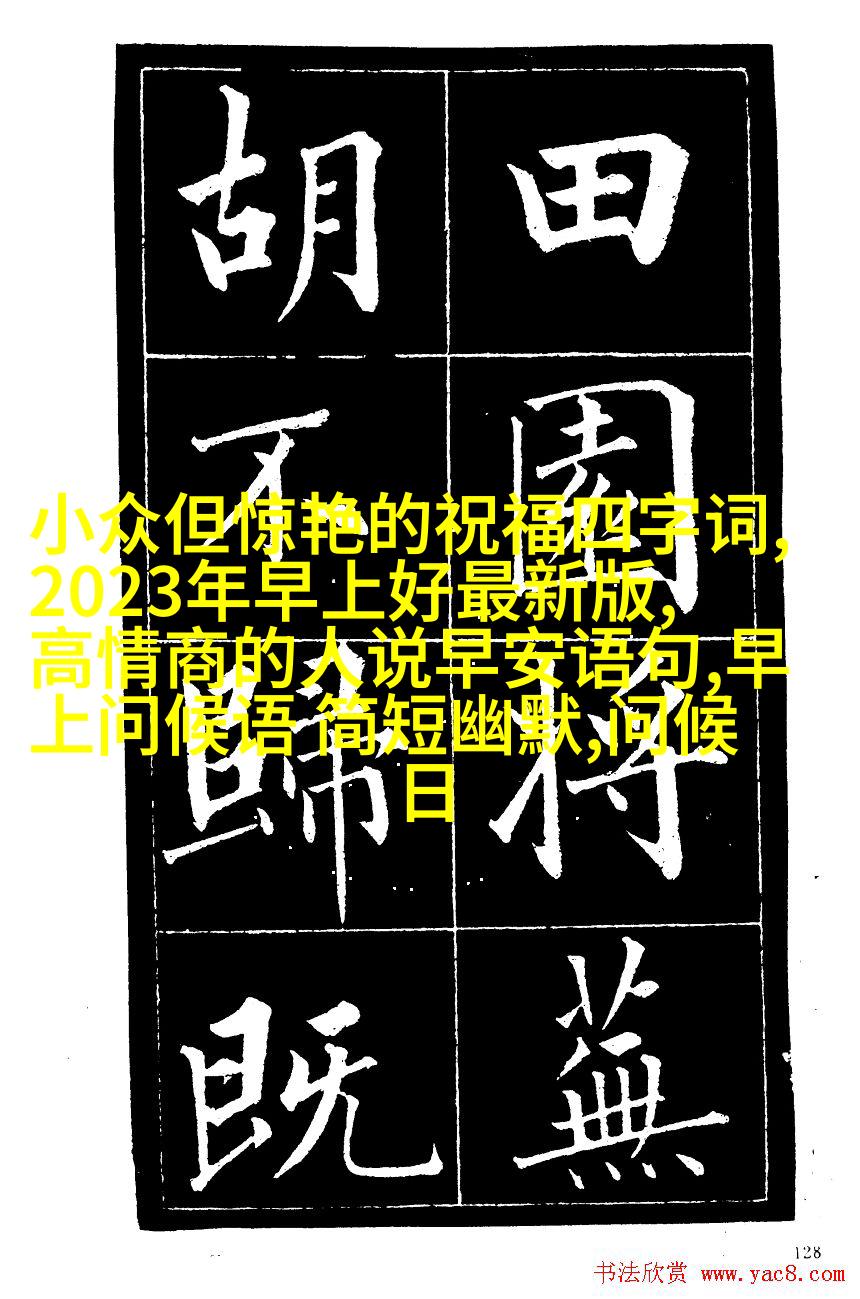 田園将蕪
胡不歸既
小众但惊艳的祝福四字词,
2023年早上好最新版,
高情商的人说早安语句,早
上问候语 简短幽默,问候
日
128
书法欣赏 www.yac8.com